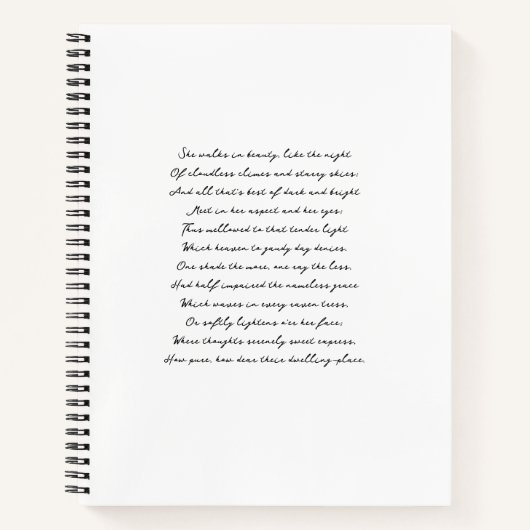 She walks in beauty, like the night
Of cloudless climes and starry skies;
And all that's best of dark and bright
Meet in her aspect and her eyes;
Thus mellowed to that tender light
Which heaven to gaudy day denies.
One shade the more, one ray the less,
Had half impaired the nameless grace
Which waves in every raven tress,
Or softly lightens o'er her face;
Where thoughts serenely sweet express,
How pure, how dear their dwelling-place.